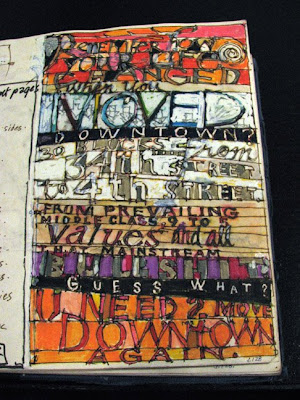 REMEMBER HOW
YOUR LIFE
CHANGED
when you
MOVED
DOWNTOWN?
30 BLOCKS from
34th STREET
TO 4th STREET
FROM PREVAILING
MIDDLE CLASS
values and all
THAT MAINSTREAM
BULLSHIT?
GUESS WHAT?
U NEED 2 MOVE
DOWNTOWN
AGAIN.
pages
sides